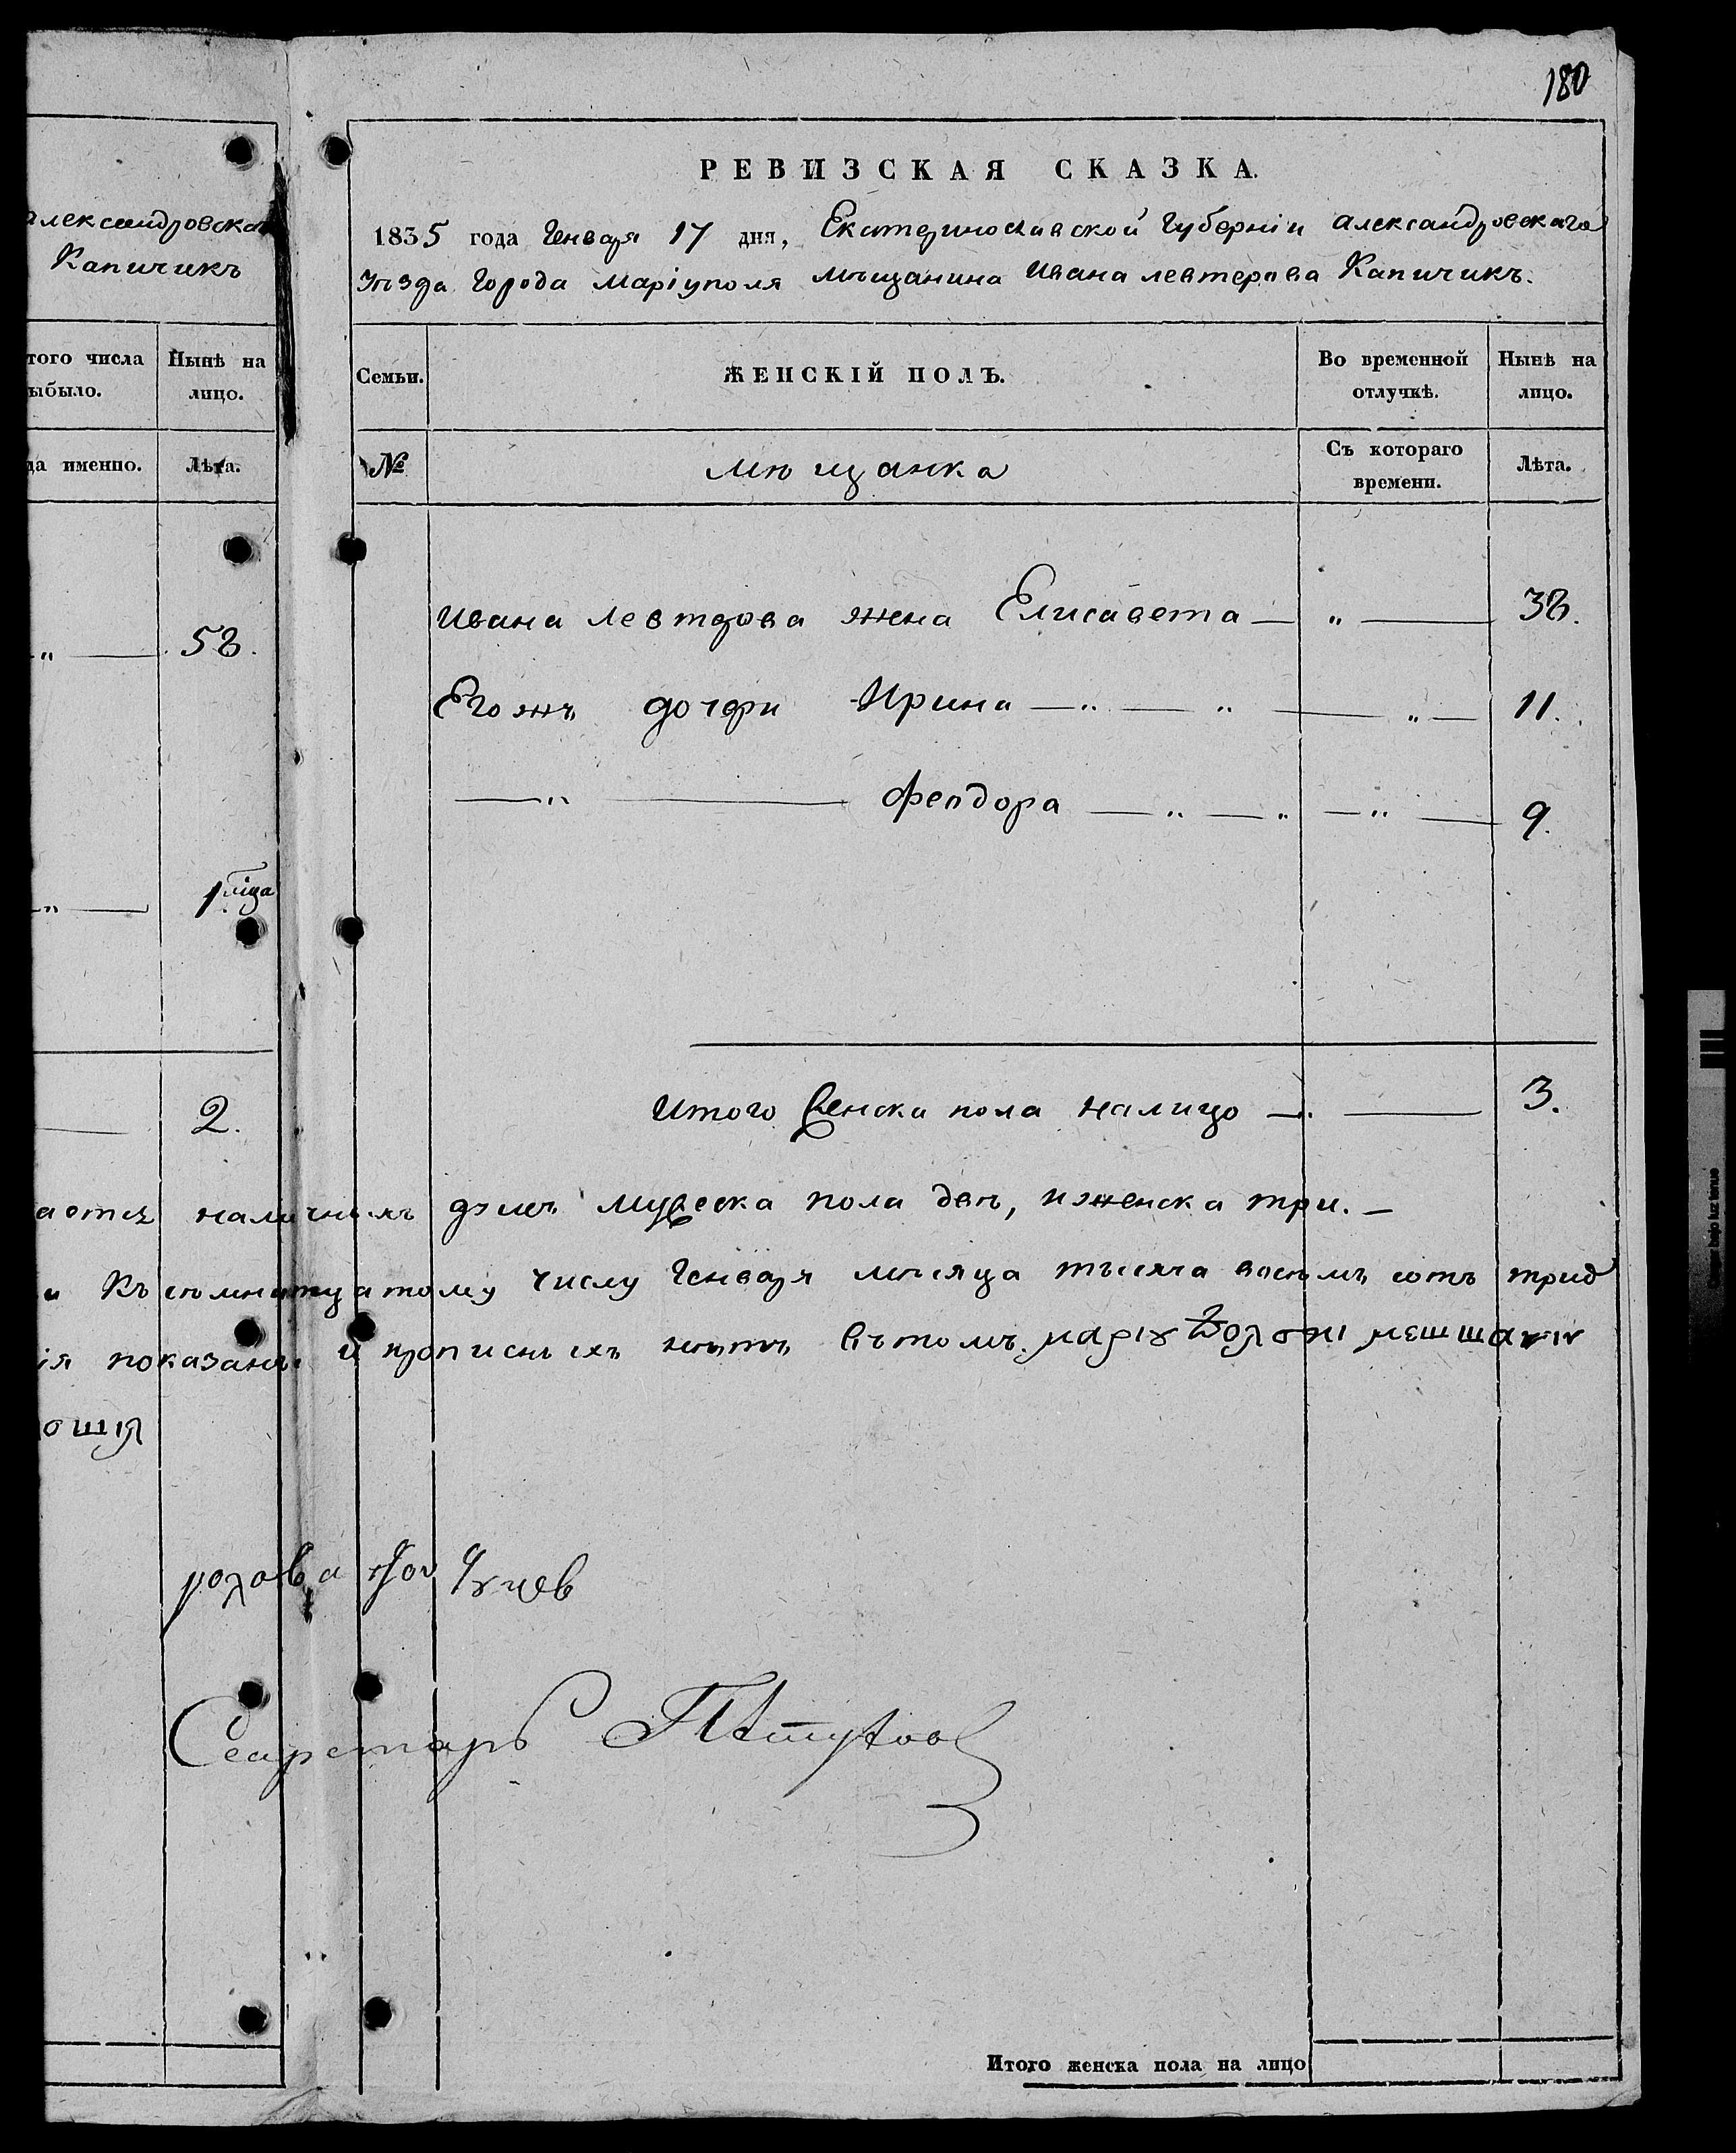 180
александровскаг
Капичикъ
того числа
ыбыло.
Нынѣ на
лицо.
да именно.
Лѣта.
„ 58.
„ 1 мца
2.
РЕВИЗСКАЯ СКАЗКА.
1835 года Генваря 17 дня, Екатеринославской Губерніи александровскаго
уѣзда Города Маріуполя мѣщанина Ивана левтерова Капичикъ.
Семьи.
ЖЕНСКІЙ ПОЛЪ.
Во временной
отлучкѣ.
Нынѣ на
лицо.
№
мѣщанка
Съ котораго
времени.
Лѣта.
Ивана левтерова жена Елисавета — „ — 38.
Его жъ дочери Ирина — „ — „ — „ — 11.
— „ — феодора — „ — „ — „ — 9.
Итого женска пола налицо — 3.
аотся наличныхъ душъ мужеска пола двѣ, и женска три. —
и Къ семнатцатому числу Генваря мѣсяца тысяча восѣмъ сотъ трид
ія показаны и прописныхъ нѣтъ вътомъ. μαριȣ
ошія
Секретарь
Итого женска пола на лицо